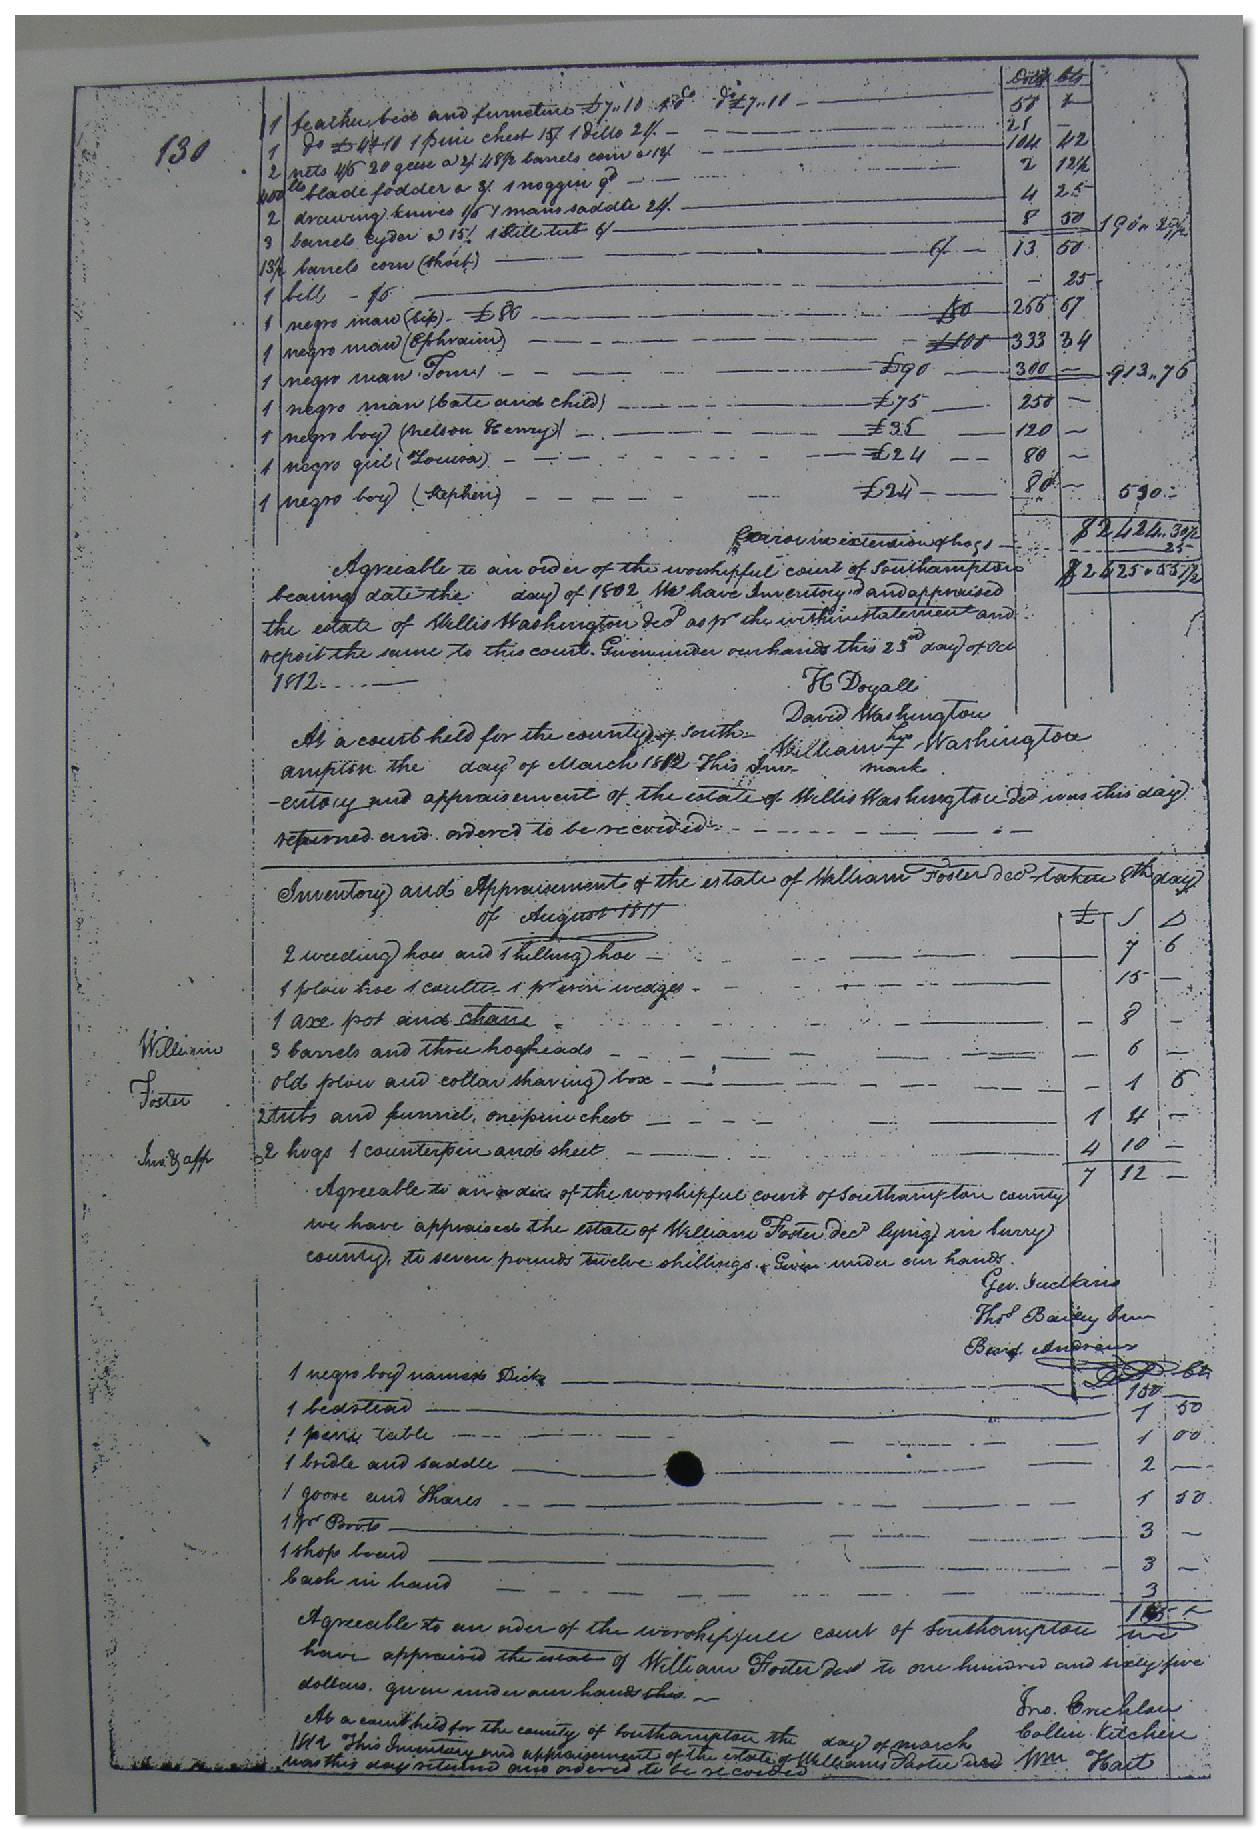 130
Dolls Cts
1 feather bed and furneture £7..10 1 do do £7..10 50 -
1 do £4..10 1 pine chest 15/ 1 ditto 24/. 25 -
2 nets 4/6 20 geese a 2/ 48 1/2 barrels corn a 12/ 104 42
400 lbs blade fodder a 3/. 1 noggin 9d 2 12 1/2
2 drawing knives 1/6 1 mans saddle 24/. 4 25
3 barrels cyder a 15/. 1 still tub 6/ 8 50 190..29 1/2
13 1/2 barrels corn (short) 6/ 13 50
1 bell - 1/6 - 25
1 negro man £80 £80 266 67
1 negro man (Ephraim) £100 333 34
1 negro man Tom £90 300 - 913..76
1 negro man (Cate and child) £75 250 -
1 negro boy (Nelson Henry) £35 120 -
1 negro girl (Louisa) £24 80 -
1 negro boy (Stephen) £24 80 - 530..-
Error in extension of hogs $2424..30 1/2
25-
$2525..55 1/2
Agreeable to an order of the worshipful court of Southampton
bearing date the day of 1802 We have Inventory'd and appraised
the estate of Willis Washington decd as pr the within statement and
report the same to this court. Given under our hands this 23rd day of Oct
1812
H Doyall
David Washington
William his + Washington
mark
At a court held for the county of South-
ampton the day of March 1812 This Inv-
-entory and appraisement of the estate of Willis Washington decd was this day
returned and ordered to be recorded
Inventory and Appraisement of the estate of William Foster decd taken 8th day
of August 1811
£ S D
2 weeding hoes and 1 hilling hoe 7 6
1 plow hoe 1 coulter 1 pr iron wedges 15 -
1 axe pot and chane - 8 -
William
3 barrels and three hogheads - 6 -
Foster
old plow and collar shaving box - 1 6
2 tubs and funnel, one pine chest 1 4 -
Inv. & app
2 hogs 1 counterpin and sheet 4 10 -
7 12 -
Agreeable to an order of the worshipful court of Southampton county
we have appraised the estate of William Foster decd lying in Surry
county, to seven pounds twelve shillings. Given under our hands.
Geo. Judkins
Thos Bailey Junr
Benj. Andrews
1 negro boy named Dick D Cts
150
1 bedstead 1 50
1 pine table 1 00
1 bridle and saddle 2 -
1 goose and Shares 1 50
1 pr Boots 3 -
1 shop board 3 -
Cash in hand 3
165 -
Agreeable to an order of the worshipfull court of Southampton we
have appraised the estate of William Foster decd to one hundred and sixty five
dollars. given under our hands this
Jno. Crichlow
Collin Kitchen
Wm Hart
At a court held for the county of Southampton the day of march
1812 This Inventory and appraisement of the estate of William Foster decd
was this day returned and ordered to be recorded